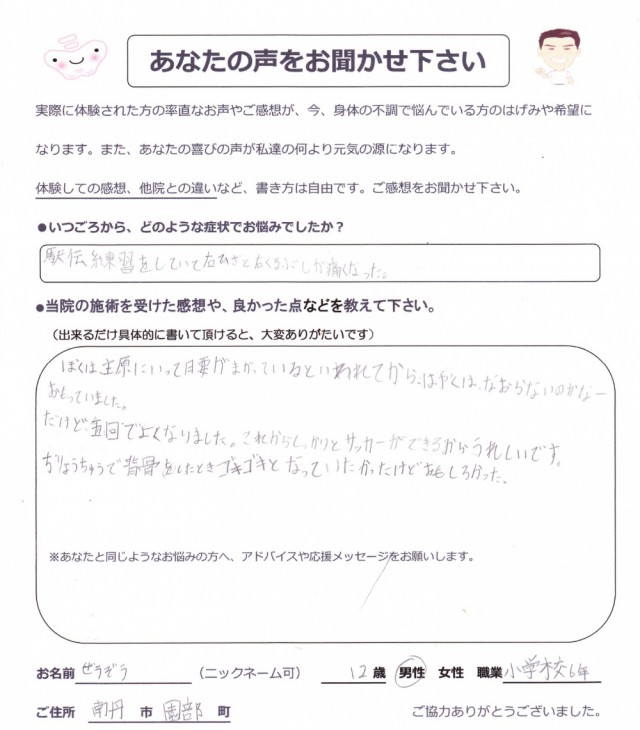 あなたの声をお聞かせ下さい
実際に体験された方の率直なお声やご感想が、今、身体の不調で悩んでいる方のはげみや希望に
なります。また、あなたの喜びの声が私達の何より元気の源になります。
体験しての感想、他院との違いなど、書き方は自由です。ご感想をお聞かせ下さい。
●いつごろから、どのような症状でお悩みでしたか？
駅伝練習をしていて右ひざと右くるぶしが痛くなった。
●当院の施術を受けた感想や、良かった点などを教えて下さい。
（出来るだけ具体的に書いて頂けると、大変ありがたいです）
ぼくは にいって がまがっているといわれてから、はやくは、なおらないのかなー
おもっていました。
だけど、五回でよくなりました。これからしっかりとサッカーができるからうれしいです。
ちりょうちゅうで背骨をしたときゴキゴキとなっていたかったけどおもしろかった。
※あなたと同じようなお悩みの方へ、アドバイスや応援メッセージをお願いします。
お名前 ぜうぞう （ニックネーム可） 12歳 男性 女性 職業 小学校6年
ご住所 南丹 市 園部 町 ご協力ありがとうございました。